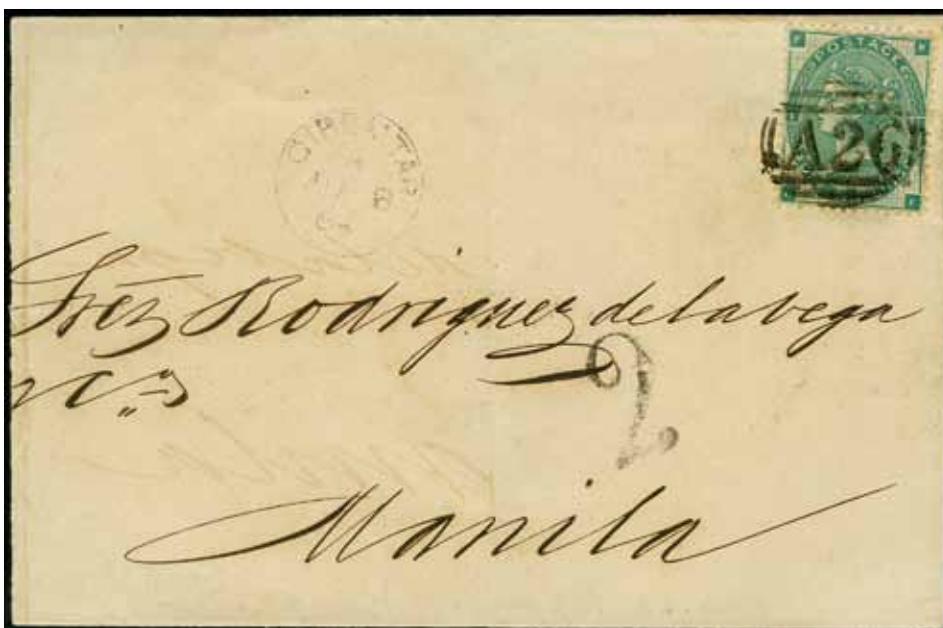 POSTAGE
A26
GIBRALTAR
Rodriguez de la vega
2
Manila